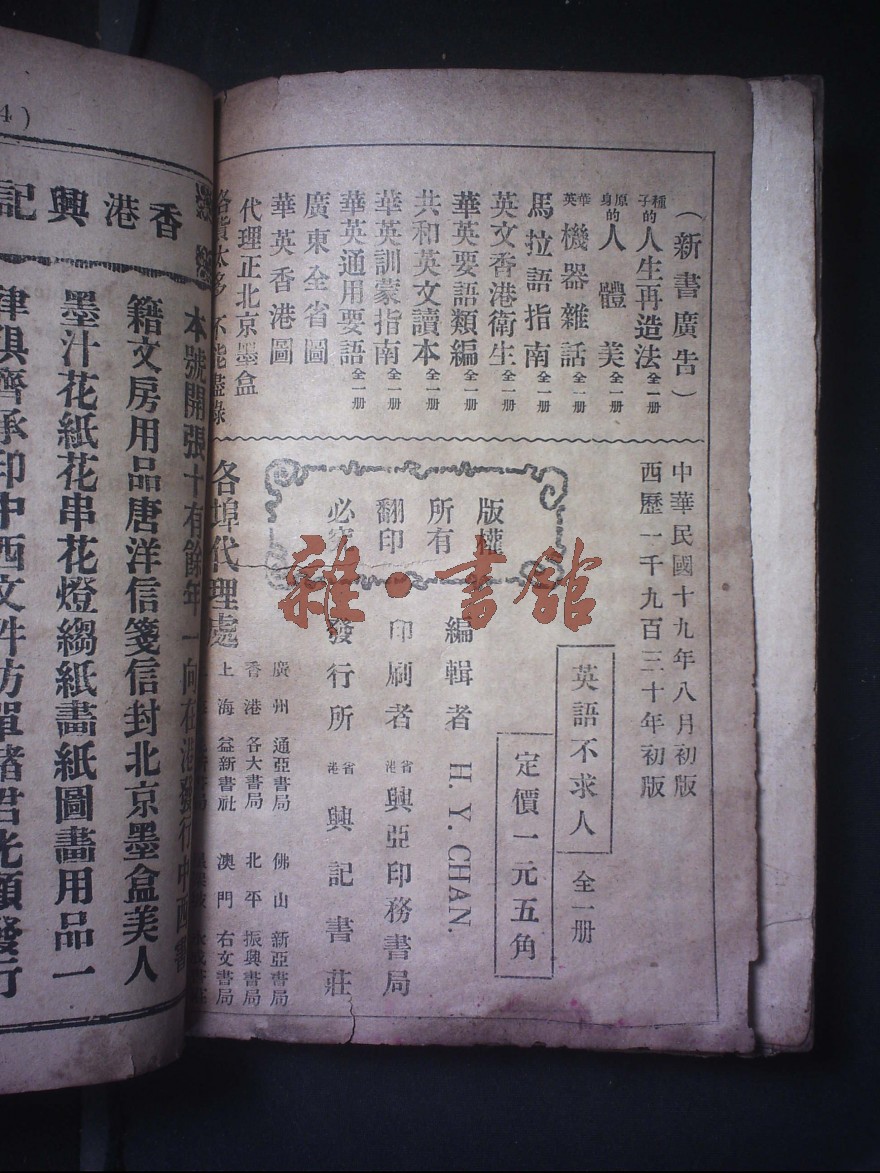 （新書廣告）
種子的人生再造法 全一册
原身的人體美 全一册
華英機器雜話 全一册
馬拉語指南 全一册
英文香港衛生 全一册
華英要語類編 全一册
共和英文讀本 全一册
華英訓蒙指南 全一册
華英通用要語 全一册
廣東全省圖
華英香港圖
代理正北京墨盒
中華民國十九年八月初版
西歷一千九百三十年初版
英語不求人 全一册
定價一元五角
版權
所有
翻印
必究
編輯者 H. Y. CHAN.
印刷者 省港興亞印務書局
發行所 省港興記書莊
各埠代理處
廣州 通亞書局 佛山 新亞書局
香港 各大書局 北平 振興書局
上海 益新書社 澳門 右文書局
4)
香港興記
本號開張十有餘年一向在港發行中西書
籍文房用品唐洋信箋信封北京墨盒美人
墨汁花紙花串花燈縐紙畫紙圖畫用品一
俱齊承印中西文件仿單諸君光顧發行
雜·書館